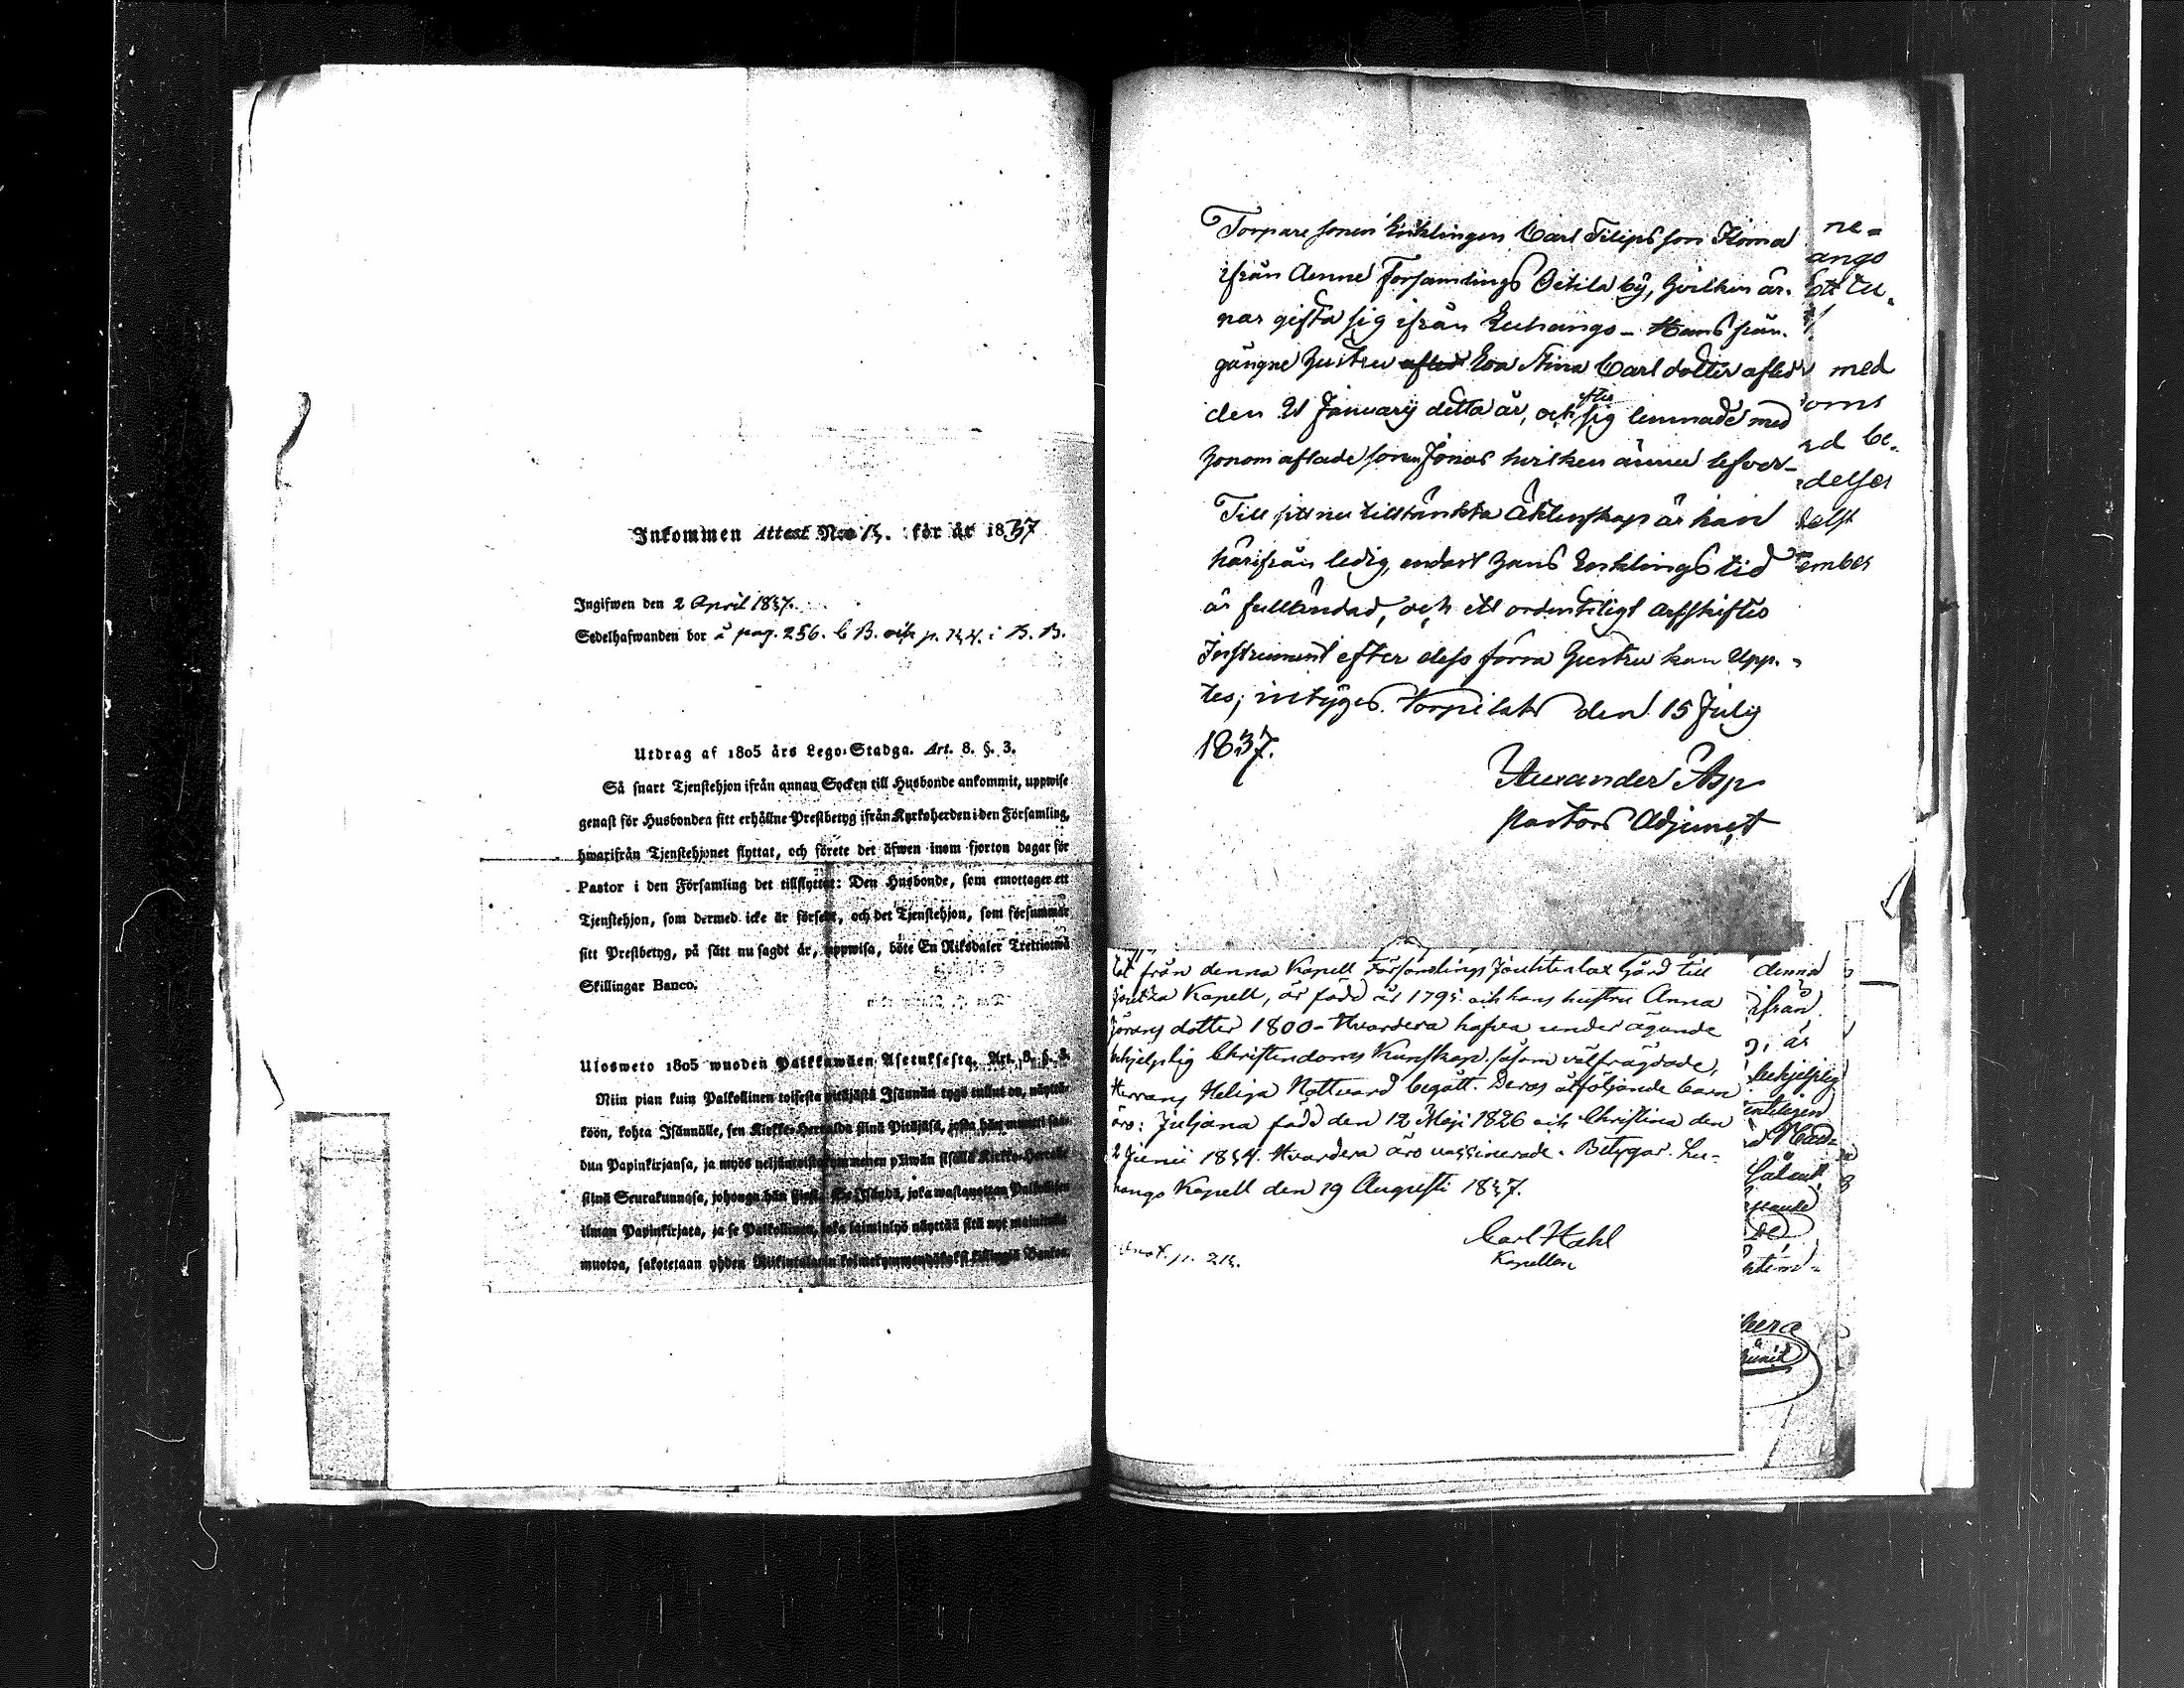 Inkommen Attest N:o 13. för år 1837
Ingifwen den 2 April 1837.
Sedelhafwanden bor å pag. 256. C B. och p. 134. i B. B.
Utdrag af 1805 års Lego-Stadga. Art. 8. §. 3.
Så snart Tjenstehjon ifrån annan Socken till Husbonde ankommit, uppwise
genast för Husbonden sitt erhållne Prestbetyg ifrån Kyrkoherden i den Församling,
hwarifrån Tjenstehjonet flyttat, och förete det äfwen inom fjorton dagar för
Pastor i den Församling det tillflyttat: Den Husbonde, som emottager ett
Tjenstehjon, som dermed icke är försedt, och det Tjenstehjon, som försummar
sitt Prestbetyg, på sätt nu sagdt är, uppwisa, böte En Riksdaler Trettiotwå
Skillingar Banco.
Ulosweto 1805 wuoden Palkkawäen Asetuksesta. Art. 8. §. 3.
Niin pian kuin Palkollinen toisesta pitäjästä Isännän tygö tullut on, näyttä-
köön, kohta Isännälle, sen Kirkko-Herralda siinä Pitäjäsä, josta hän muutti saa-
dun Papinkirjansa, ja myös neljäntoistakymmenen päiwän sisällä Kirkko-Herralle
siinä Seurakunnasa, johonga hän
ilman Papinkirjata, ja se Palkollinen, joka laiminlyö näyttää sitä nyt mainitulla
muotoa, sakotetaan yhden Riikintalarin kolmekymmendäkaksi killingiä Bankoa.
Torpare sonen Enklingen Carl Filipsson Homa
ifrån denne Församlings Oetila by, hvilken är-
nar gifta sig ifrån Euhango - Hans från-
gångne hustru Eva Stina Carlsdotter afled
den 21 January detta år, och efter sig lemnade med
honom aflade sonen Jonas hvilken ännu lefver-
Till sitt nu tilltänkta Äktenskap är han
härifrån ledig, endast hans Enklings tid
är fulländad, och ett ordentligt arfskiftes
Instrument efter dess förra hustru kan Upp-
tes; intygas. Korpilaks den 15 July
1837.
Alexander Asp
Pastors Adjunct
ne=
ango
med
oms
delser
ember
från denna Kapell Församlings Jouhtenlax Gård till
Kapell, är född år 1795 och hans hustru Anna
Jörans dotter 1800 - Hvardera hafva under ägande
behjelplig Christendoms Kunskap, såsom välfrägdade,
Herrans Heliga Nattvard begått. Deras åtföljande barn
äro: Juljana född den 12 Maji 1826 och Christina den
2 Junii 1834. Hvardera äro vaccinerade. Betygar. Lu-
hango Kapell den 19 Augusti 1837.
Carl Hahl
Kapellan
p. 213.
denna
ifrån
är
behjelplig